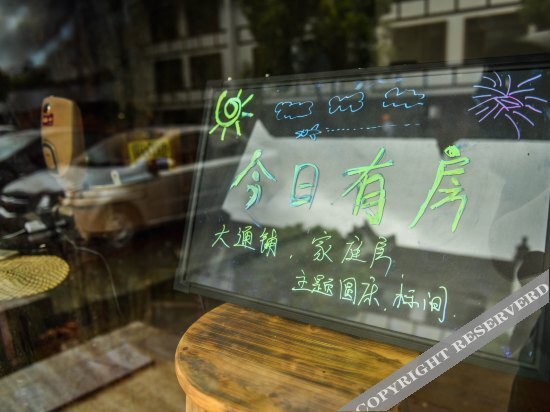 今日有房
大通铺，家庭房
主题圆床，标间.
COPYRIGHT RESERVED